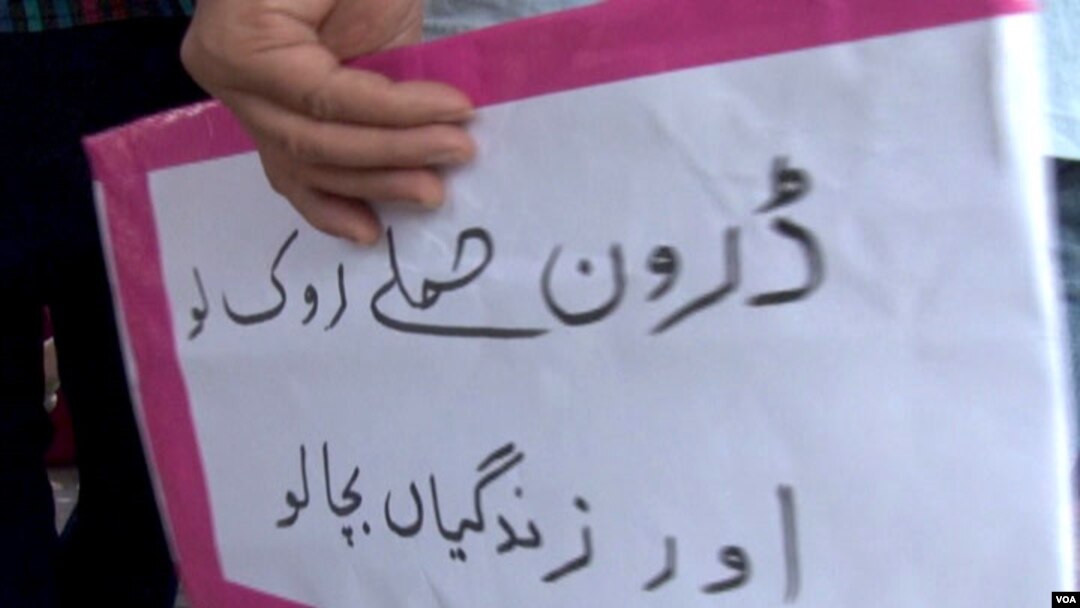 ڈرون حملے روک لو
اور زندگیاں بچا لو
VOA